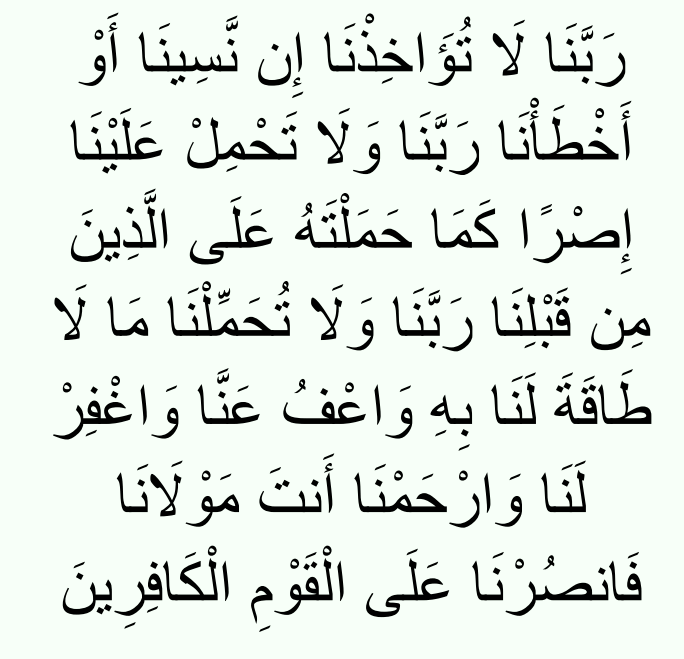 رَبَّنَا لَا تُؤَاخِذْنَا إِن نَّسِينَا أَوْ
أَخْطَأْنَا رَبَّنَا وَلَا تَحْمِلْ عَلَيْنَا
إِصْرًا كَمَا حَمَلْتَهُ عَلَى الَّذِينَ
مِن قَبْلِنَا رَبَّنَا وَلَا تُحَمِّلْنَا مَا لَا
طَاقَةَ لَنَا بِهِ وَاعْفُ عَنَّا وَاغْفِرْ
لَنَا وَارْحَمْنَا أَنتَ مَوْلَانَا
فَانصُرْنَا عَلَى الْقَوْمِ الْكَافِرِينَ